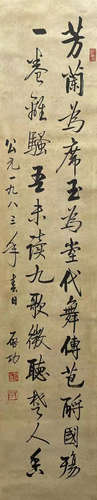 芳蘭為席玉為堂代舞傳芭酹國殤
一卷離騷吾未讀九歌微聽楚人香
公元一九八三年春日 启功